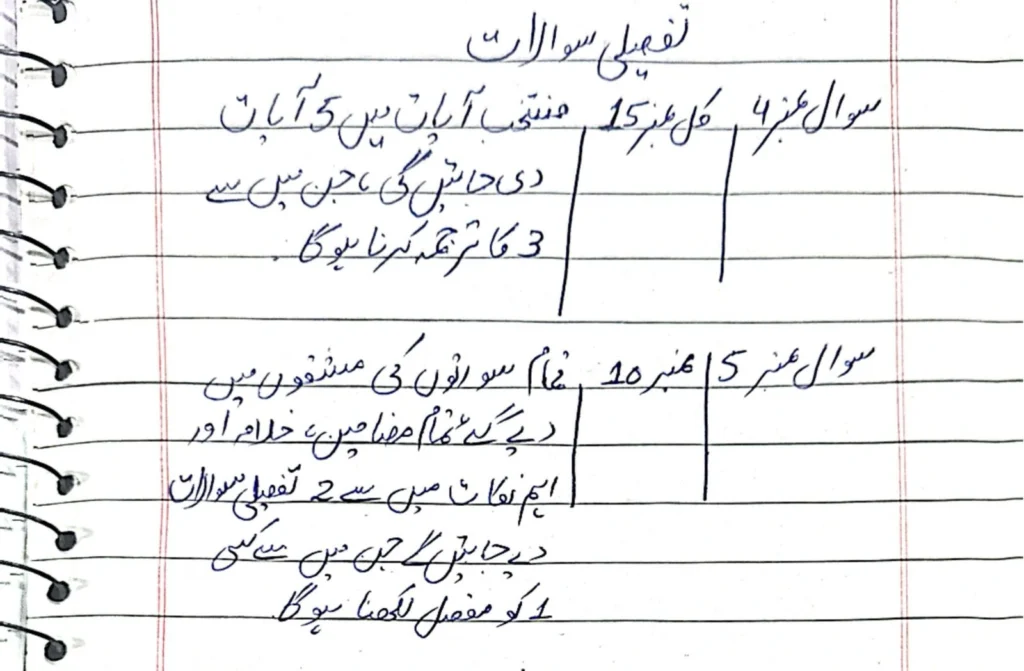 تفصیلی سوالات
سوال نمبر 4 کل نمبر 15 منتخب آیات میں 5 آیات
دی جائیں گی، جن میں سے
3 کا ترجمہ کرنا ہوگا۔
سوال نمبر 5 نمبر 10 تمام سورتوں کی مشقوں میں
دیے گئے تمام مضامین، خلاصہ اور
اہم نکات میں سے 2 تفصیلی سوالات
دیے جائیں گے جن میں سے کسی
1 کو مفصل لکھنا ہوگا